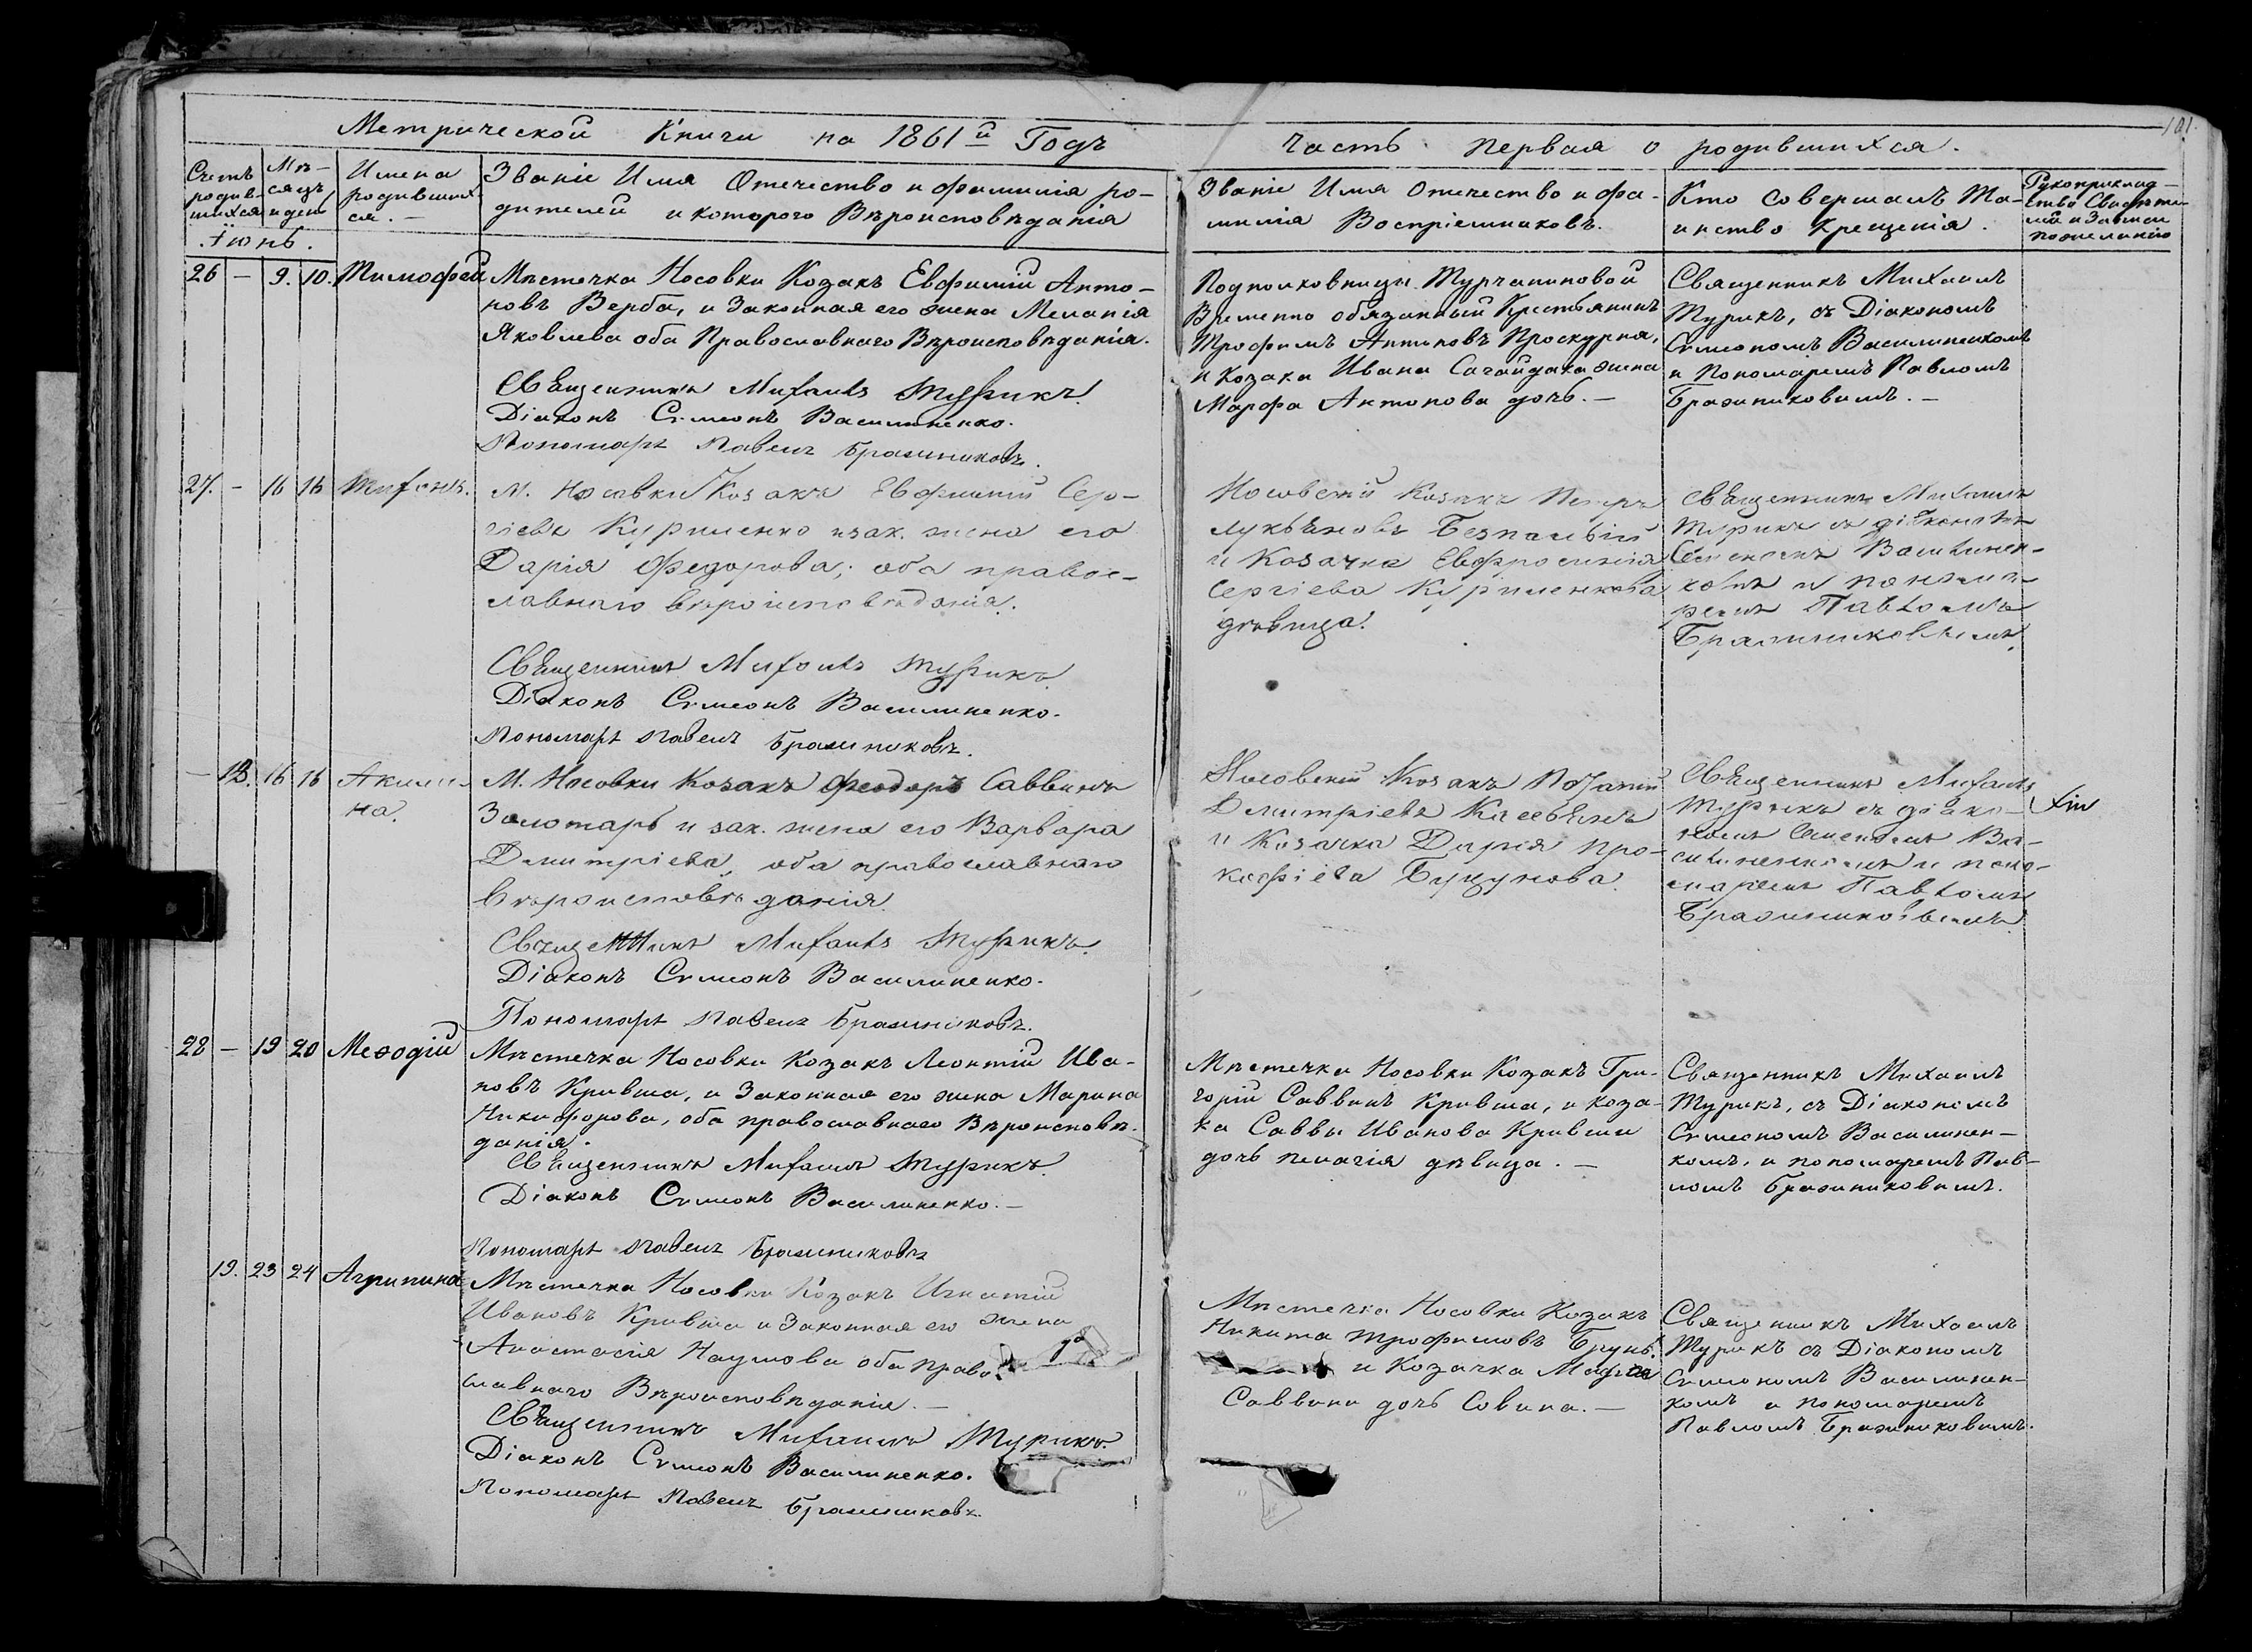 101.
Метрической Книги на 1861й Годъ
Часть первая о родившихся.
Счетъ родив-шихся
Мѣ-сяцъ и день
Имена родивших-ся. —
Званіе Имя Отечество и фамилія ро-
дителей и которого Вѣроисповѣданія
Званіе Имя Отечество и фа-
милія Воспріемниковъ.
Кто совершалъ Та-
инство Крещенія.
Рукоприклад-
ство Свидѣте-
лей и Записи
по желанію
Іюнь.
26 — 9. 10. Тимофей
Мѣстечка Носовки Козакъ Евфимій Анто-
новъ Верба, и Законная его жена Меланія
Яковлева оба Православнаго Вѣроисповѣданія.
Священникъ Михаилъ Турикъ.
Діаконъ Симеонъ Василиненко.
Пономарь Павелъ Бражниковъ.
Подполковницы Турчаниновой
Временно обязанный Крестьянинъ
Трофимъ Антиповъ Проскурня,
и Козака Ивана Сагайдака жена
Марфа Антонова дочь. —
Священникъ Михаилъ
Турикъ, съ Діакономъ
Симеономъ Василиненкомъ
и Пономаремъ Павломъ
Бражниковимъ. —
27. — 16 16
М. Носовки Козакъ Евфимій Сер-
гіевъ Куриленко и зак. жена его
Дарія Федорова; оба правос-
лавнаго вѣроисповѣданія.
Священникъ Михаилъ Турикъ.
Діаконъ Симеонъ Василиненко.
Пономарь Павелъ Бражниковъ.
Носовскій Козакъ Петръ
Лукьяновъ Безпалый
и Козачка Евфросинія
Сергіева Куриленкова
дѣвица.
Священникъ Михаилъ
Турикъ съ діакономъ
Симеономъ Василинен-
комъ и понома-
ремъ Павломъ
Бражниковымъ.
— 18. 16 16 Акили-
на.
М. Носовки Козакъ Феодоръ Саввинъ
Золотарь и зак. жена его Варвара
Дмитріева, оба православнаго
вѣроисповѣданія.
Священникъ Михаилъ Турикъ.
Діаконъ Симеонъ Василиненко.
Пономарь Павелъ Бражниковъ.
Носовскій Козакъ
Дмитріевъ
и Козачка Дарія Про-
кофіева
Священникъ Михаилъ
Турикъ съ діако-
номъ Симеономъ Ва-
силиненкомъ и поно-
маремъ Павломъ
Бражниковымъ.
28 — 19 20 Меѳодій
Мѣстечка Носовки Козакъ Леонтій Ива-
новъ Кривша, и Законная его жена Марина
Никифорова, оба православнаго Вѣроисповѣ-
данія.
Священникъ Михаилъ Турикъ.
Діаконъ Симеонъ Василиненко. —
Пономарь Павелъ Бражниковъ
Мѣстечка Носовки Козакъ Гри-
горій Саввинъ Кривша, и Коза-
ка Саввы Иванова Кривши
дочь Пелагія дѣвица. —
Священникъ Михаилъ
Турикъ, съ Діакономъ
Симеономъ Василинен-
комъ, и пономаремъ Пав-
ломъ Бражниковимъ.
19. 23 24 Агрипина
Мѣстечка Носовки Козакъ Игнатій
Ивановъ Кривша и Законная его жена
Анастасія Наумова оба Право-
славнаго Вѣроисповѣданія. —
Священникъ Михаилъ Турикъ.
Діаконъ Симеонъ Василиненко.
Пономарь Павелъ Бражниковъ.
Мѣстечка Носовки Козакъ
Никита Трофимовъ Брунь.
и Козачка
Саввина дочь Совина. —
Священникъ Михаилъ
Турикъ съ Діакономъ
Симеономъ Василинен-
комъ и пономаремъ
Павломъ Бражниковимъ.